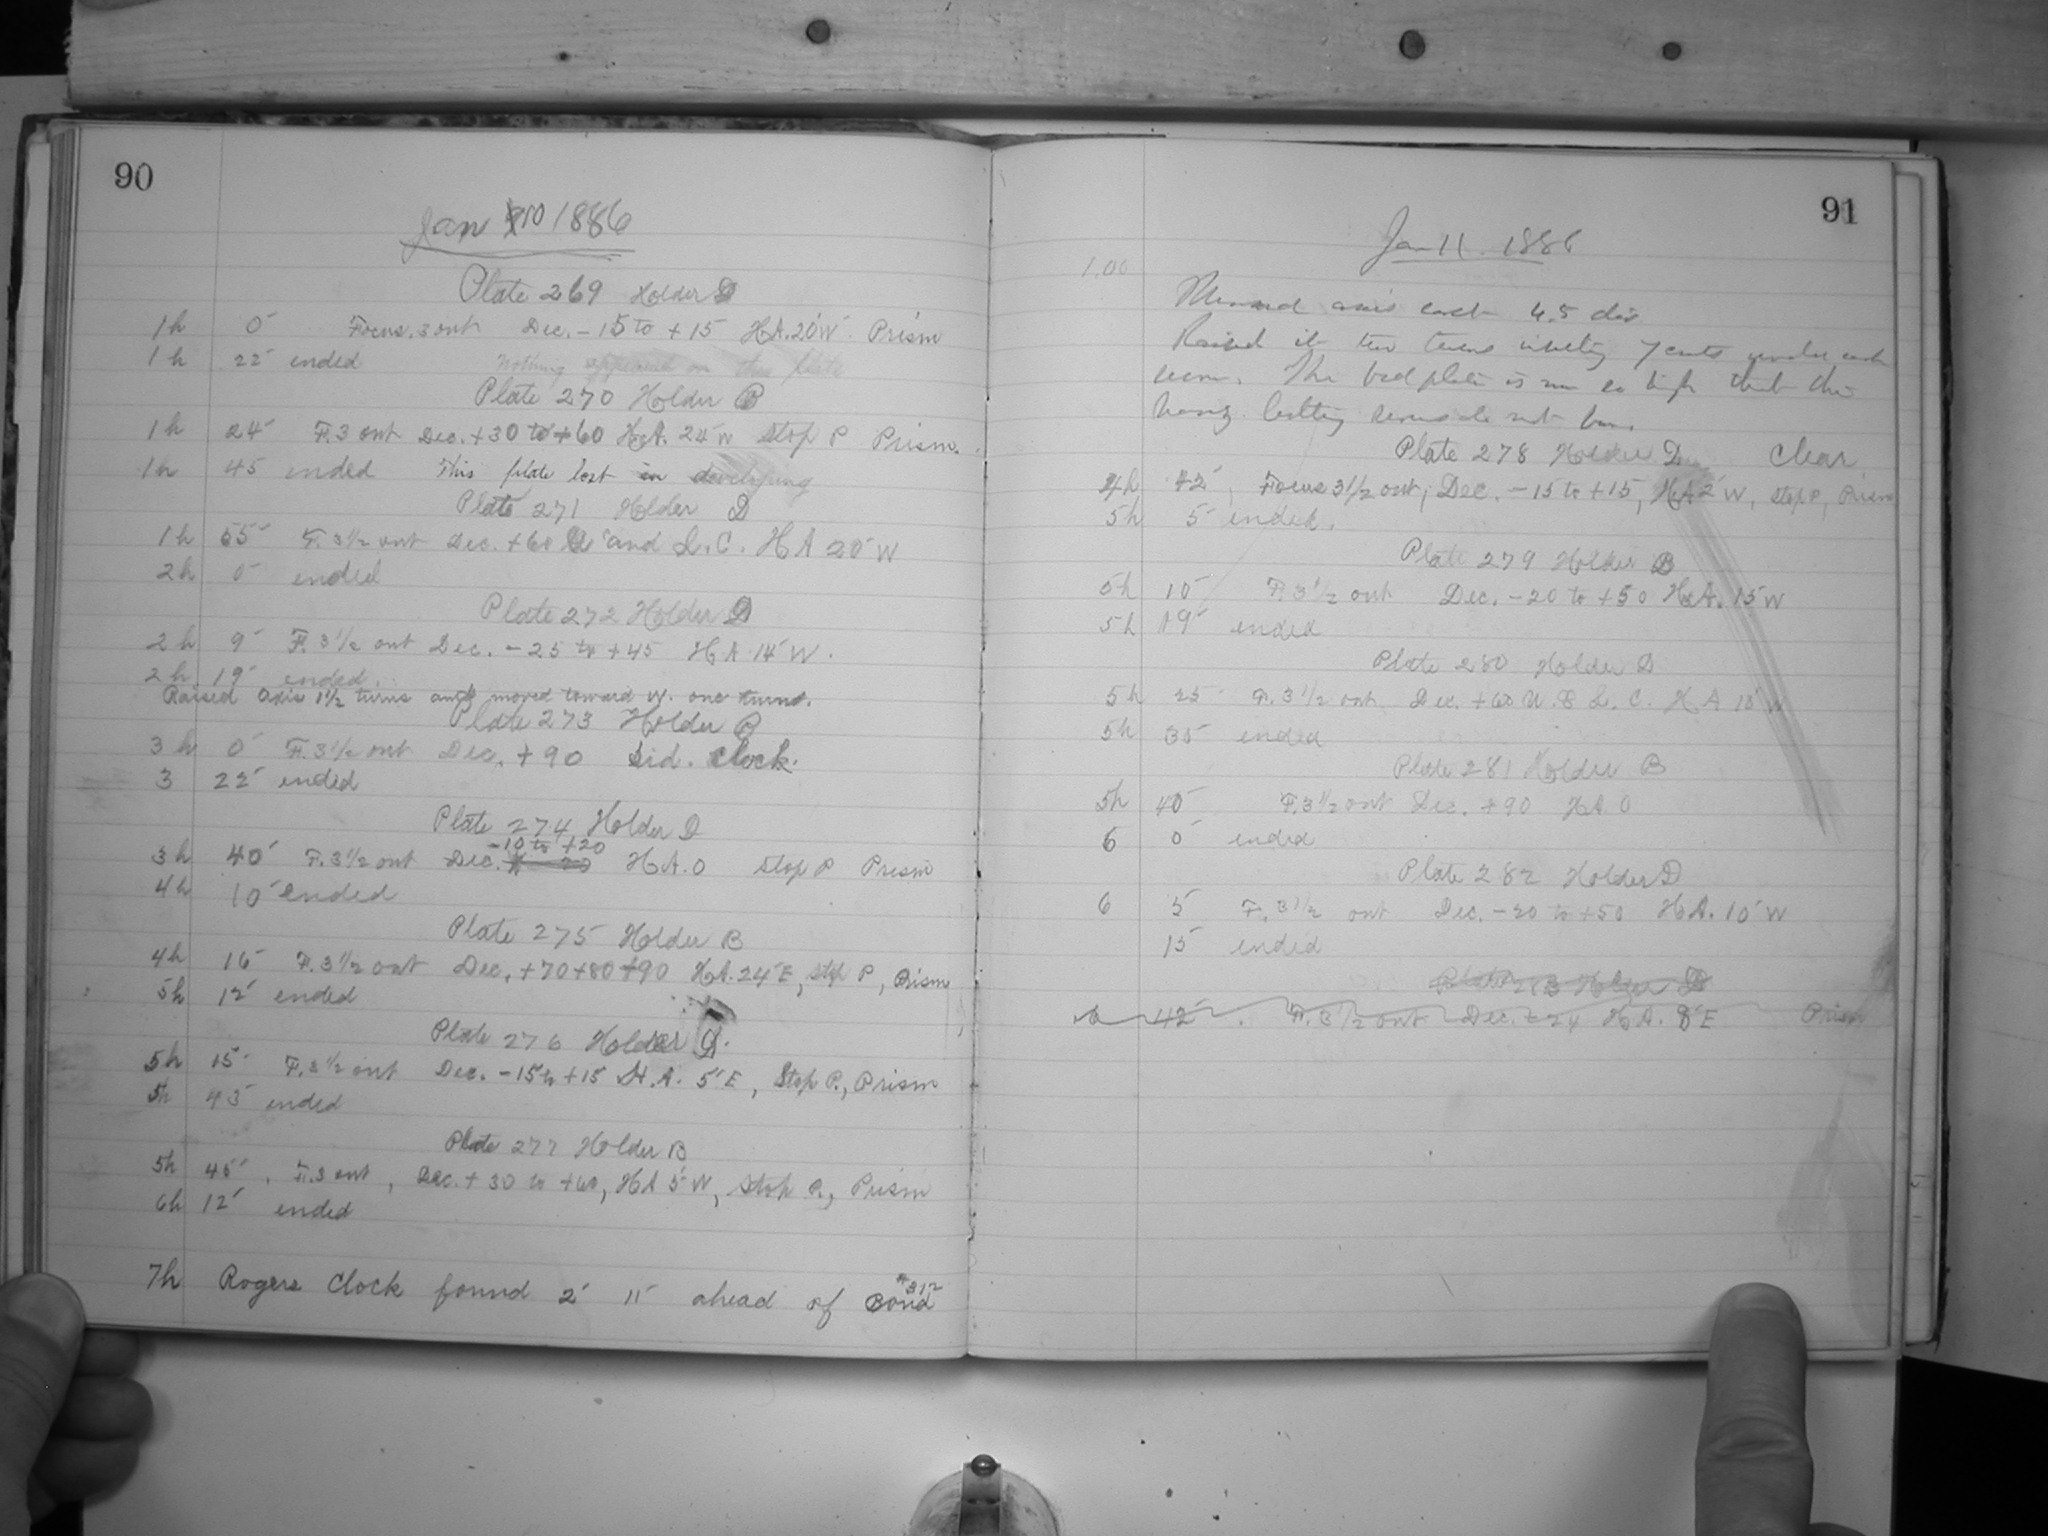 90
Jan 10 1886
Plate 269 Holder D
1h 0' Focus. 3 out Dec. -15 to +15 H.A. 20'W. Prism
1h 22' ended Nothing appeared on this plate
Plate 270 Holder B
1h 24' F. 3 out Dec. +30 to +60 H.A. 24'W Stop P Prism.
1h 45 ended This plate lost in developing
Plate 271 Holder D
1h 55' F. 3 1/2 out Dec. +60 U and L.C. H A 20'W
2h 0' ended
Plate 272 Holder D
2h 9' F. 3 1/2 out Dec. -25 to +45 H A 14'W.
2h 19' ended.
Raised Axis 1 1/2 turns and moved toward W. one turn.
Plate 273 Holder B
3h 0' F. 3 1/2 out Dec. +90 Sid. Clock.
3 22' ended
Plate 274 Holder D
-10 to +20
3h 40' F. 3 1/2 out Dec. H.A. 0 Stop P Prism
4h 10' ended
Plate 275 Holder B
4h 16' F. 3 1/2 out Dec. +70+80+90 H.A. 24'E, Stop P, Prism
5h 12' ended
Plate 276 Holder D.
5h 15' F. 3 1/2 out Dec. -15 to +15 H.A. 5'E, Stop P., Prism
5h 43' ended
Plate 277 Holder B
5h 45', F. 3 out, Dec. +30 to +60, H A 5'W, Stop P., Prism
6h 12' ended
7h Rogers Clock found 2' 11" ahead of Bond #312
91
Jan 11. 1886
1.00
axis east 4.5 div
Raised it two turns 7 cents under each
screw. The bed plate is now so high that the
horiz. do not
Plate 278 Holder D Clear
4h 42', Focus 3 1/2 out; Dec. -15 to +15, H A 2'W, Stop P, Prism
5h 5' ended.
Plate 279 Holder B
5h 10' F. 3 1/2 out Dec. -20 to +50 H.A. 15'W
5h 19' ended
Plate 280 Holder D
5h 25' F. 3 1/2 out Dec. +60 U. & L. C. H A 10'W
5h 35' ended
Plate 281 Holder B
5h 40' F. 3 1/2 out Dec. +90 H.A. 0
6 0' ended
Plate 282 Holder D
6 5' F. 3 1/2 out Dec. -20 to +50 H.A. 10'W
15' ended
Plate 283 Holder B
6 42'. F. 3 1/2 out Dec. -24 H.A. 8'E Prism